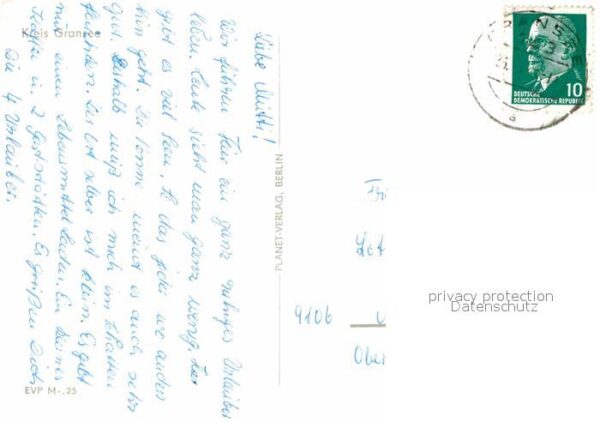 Kreis Gransee
Liebe Mutti!
Wir führen hier ein ganz ruhiges Urlauber
leben. Leute sieht man ganz wenig. Hier
gibt es viel
hin geht. Die Sonne meint es auch sehr
gut. Deshalb muß ich mich im Schatten
Der Ort selber ist klein. Es gibt
nur einen Lebensmittelladen. Ein kleines
in 2 Gaststätten. Es grüßen Dich
Die 4 Urlauber.
EVP M -.25
PLANET-VERLAG, BERLIN
GRANSEE
10
DEUTSCHE
DEMOKRATISCHE REPUBLIK
9106
Ober
privacy protection
Datenschutz